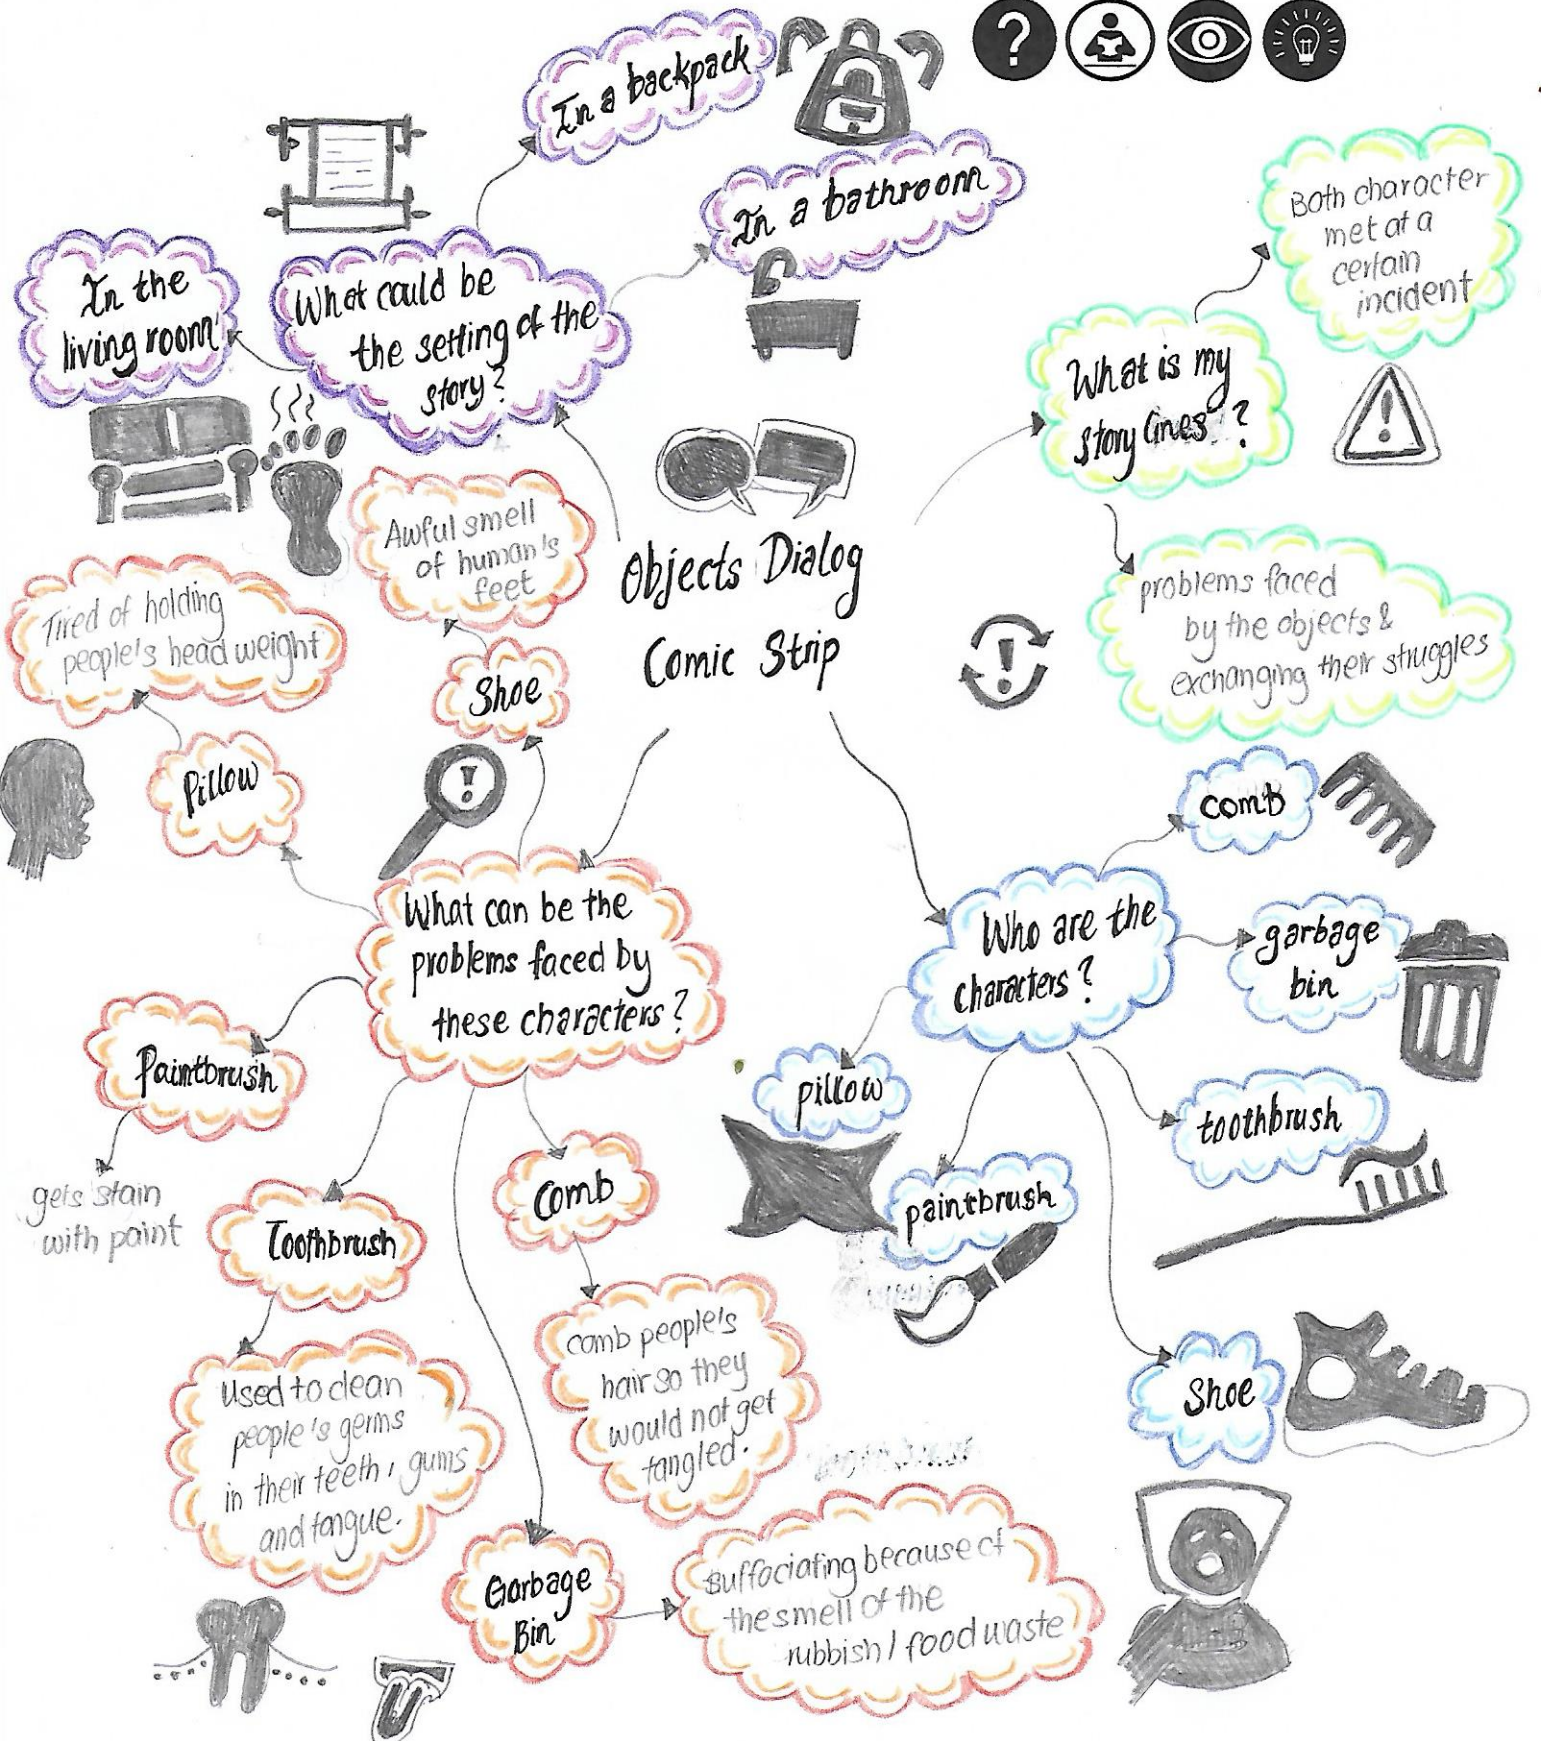 In a backpack
In a bathroom
What could be
the setting of the
story?
In the
living room
Objects Dialog
Comic Strip
What is my
story lines ?
Both character
met at a
certain
incident
problems faced
by the objects &
exchanging their struggles
Who are the
characters?
comb
garbage
bin
toothbrush
Shoe
paintbrush
pillow
What can be the
problems faced by
these characters?
Shoe
Awful smell
of human's
feet
Pillow
Tired of holding
people's head weight
Paintbrush
gets stain
with paint
Toothbrush
Used to clean
people's germs
in their teeth, gums
and tongue.
Comb
comb people's
hair so they
would not get
tangled.
Garbage
Bin
suffociating because of
the smell of the
rubbish / food waste